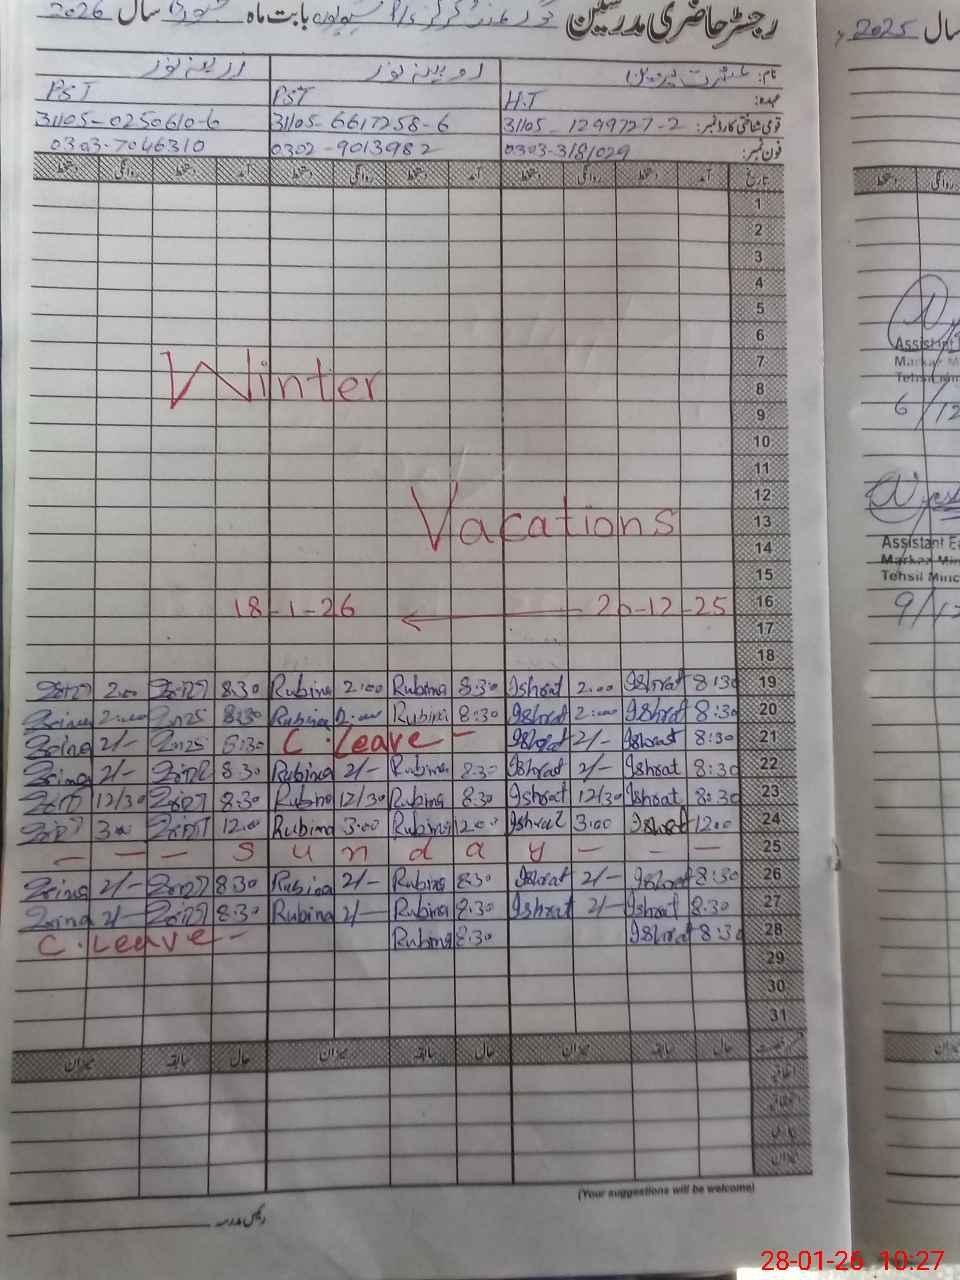 رجسٹر حاضری مدرسین بابت ماہ سال 2026
نام: عشرت پروین روبینہ نور زرینہ نور
عہدہ: H.T PST PST
قومی شناختی کارڈ نمبر: 31105-1299727-2 31105-6617258-6 31105-0250610-6
فون نمبر: 0303-3181029 0302-9013982 0303-7046310
تاریخ آمد دستخط روانگی دستخط آمد دستخط روانگی دستخط آمد دستخط روانگی دستخط
1
2
3
4
5
6
7
Winter
8
9
10
11
12
Vacations
13
14
15
18-1-26 20-12-25 16
17
18
2.00 8.30 Rubina 2.00 Rubina 8.30 Ishrat 2.00 Ishrat 8:30 19
2.00 8:30 Rubina 2.00 Rubina 8:30 Ishrat 2.00 Ishrat 8:30 20
2/- 8:30 C.Leave - Ishrat 2/- Ishrat 8:30 21
2/- 8.30 Rubina 2/- Rubina 8.30 Ishrat 2/- Ishrat 8:30 22
12/30 8.30 Rubina 12/30 Rubina 8.30 Ishrat 12/30 Ishrat 8:30 23
3.00 12.00 Rubina 3.00 Rubina 12.00 Ishrat 3.00 Ishrat 12.00 24
- - - S u n d a y - - - 25
2/- 8:30 Rubina 2/- Rubina 8.30 Ishrat 2/- Ishrat 8:30 26
2/- 8.30 Rubina 2/- Rubina 8.30 Ishrat 2/- Ishrat 8.30 27
C.Leave - Rubina 8.30 Ishrat 8:30 28
29
30
31
حال سابقہ میزان حال سابقہ میزان حال سابقہ میزان
اتفاقی
میزان
(Your suggestions will be welcome)
رئیس مدرسہ
سال 2025
روانگی دستخط
Assistant
Markaz M
Tehsil
6/12
Assistant E
Markaz Min
Tehsil Minc
9/12
28-01-26 10:27